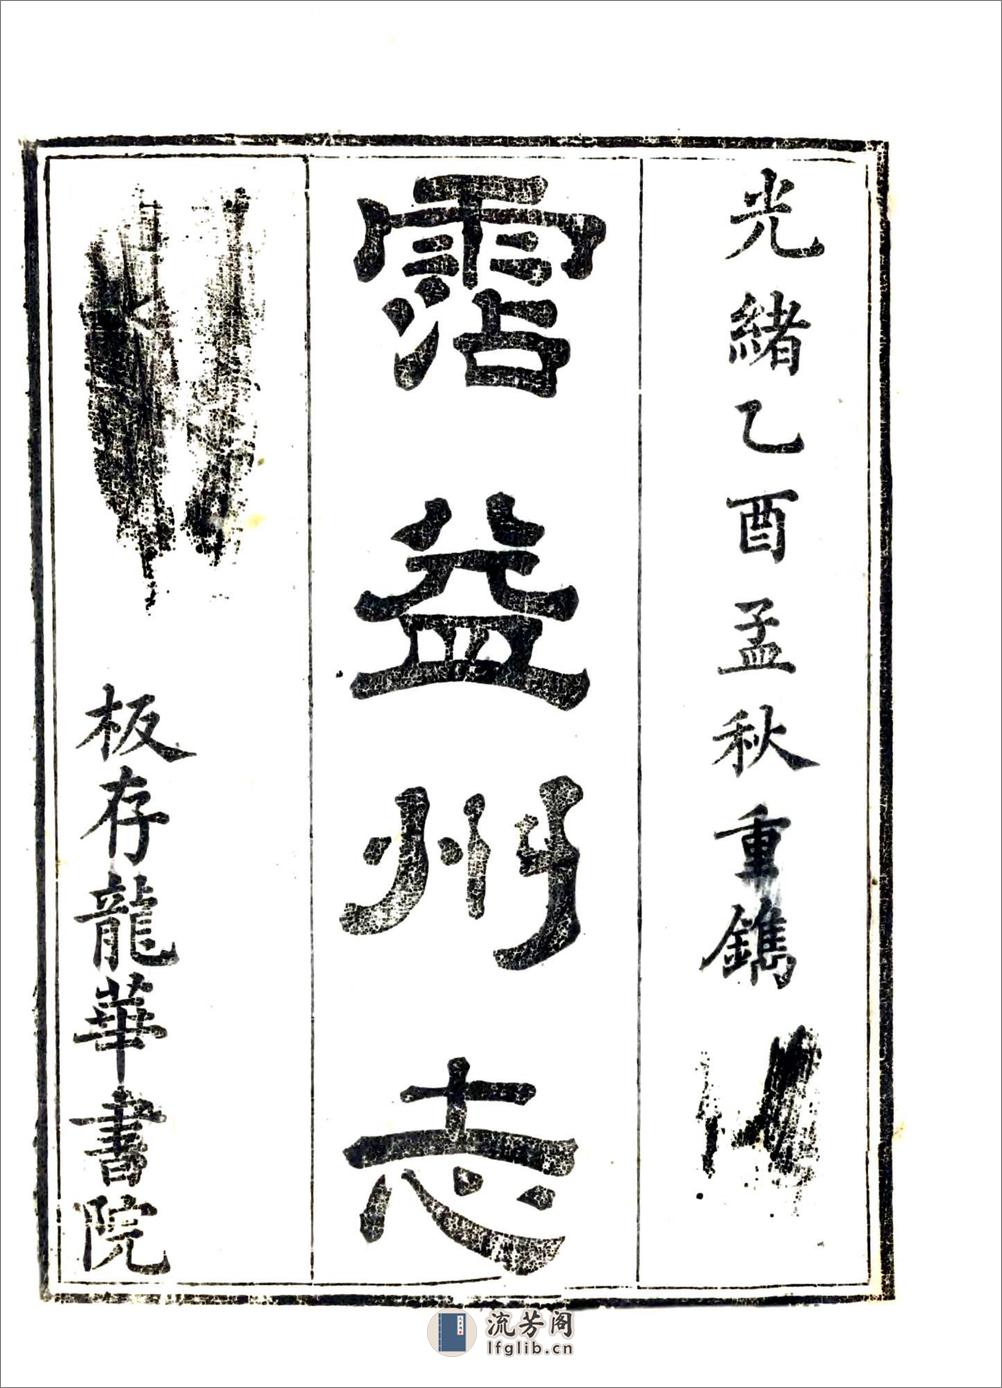 光緒乙酉孟秋重鐫
霑益州志
板存龍華書院
流芳阁
lfglib.cn